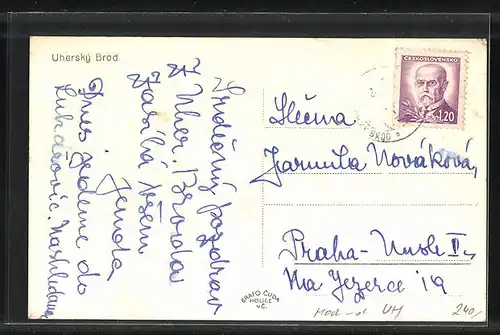 Uherský Brod
Srdečný pozdrav
z Uher. Brodu
zasílá všem
Jenda.
Dnes jedeme do
Luhačovic. Nashledanou
ČESKOSLOVENSKO
1.20
BROD
Slečna
Jarmila Nováková,
Praha-Nusle II.,
Na Jezerce 19
GRAFO ČUDA
HOLICE
v Č.
UH
240,